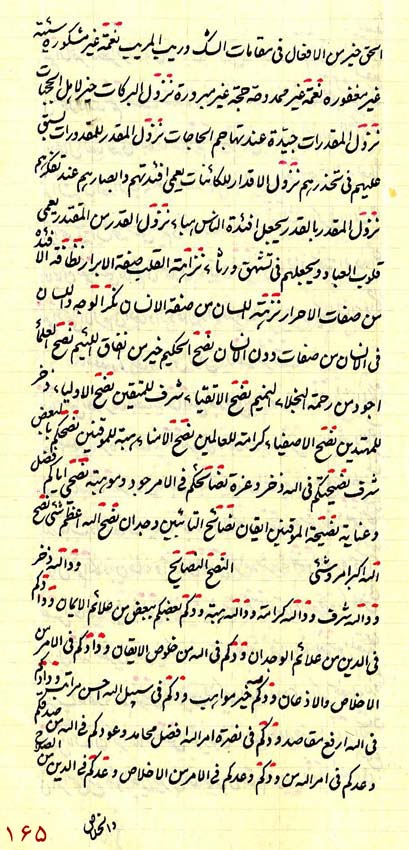 الحق خیر من الافعال فی مقامات الشک و ریب المریب نغمة غیر مشکوره سیئة
غیر مغفوره نغمة غیر محمدوصة حجة غیر مبرورة نزول البرکات خیر لاهل الجنات
نزول المقدرات جیدة عند تهاجم الحاجات نزول المقدر للمقدورات لسبق
علیهم فی تحذرهم نزول الاقدار للکائنات یعمی افئدتهم و ابصارهم عند تفکرهم
نزول المقدر بالقدر یجعل افئدة الناس هباء نزول القدر من المقتدر یعمی
قلوب العباد و یجعلهم فی تشهق ورثاء نزاهة القلب صفة الابرار نظافة الافئدة
من صفات الاحرار نزهة اللسان من صفة الانسان نکر الوجه و اللسان
فی الانسان من صفات دون الانسان نصح الحکیم خیر من نفاق اللئیم نصح العلماء
اجود من رحمة البخلاء النمیم نصح الاتقیاء شرف للمتقین نصح الاولیاء ذخر
للمهتدین نصح الاصفیاء کرامة للعالمین نصح الامناء هبة للموقنین نصحکم بالبعض
شرف نصحتکم فی الله ذخر و عزة نصائحکم فی الامر جود و موهبة نصحی ایاکم فضل
و عنایة نصیحة الموقنین ایقان نصائح التائبین وجدان نصح الله اعظم شئی نصح
الله اکبر امر و شئی النصح النصایح و ودالله ذخر
و ودالله شرف و ودالله کرامة و ودالله هبة و ودکم بعضکم ببعض من علائم الایمان و ودادکم
فی الدین من علائم الوجدان و ودکم فی الله من خلوص الایقان و ودادکم فی الامر من
الاخلاص و الاذعان و ودکم خیر مواهب و ودکم فی سبیل الله حسن مراتب و ودادکم
فی الله ارفع مقاصد و ودکم فی نصرة امرالله افضل محامد وعودکم فی الله من صدقکم
وعدکم فی امرالله من ودکم وعدکم فی الامر من الاخلاص وعدکم فی الدین من
۱۶۵